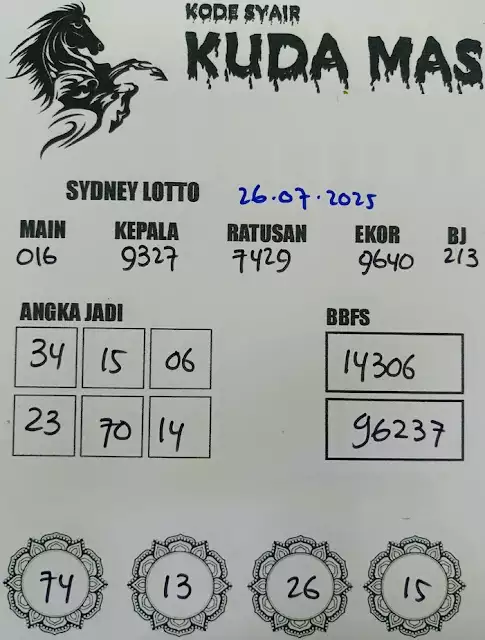 KODE SYAIR
KUDA MAS
SYDNEY LOTTO 26.07.2025
MAIN KEPALA RATUSAN EKOR BJ
016 9327 7429 9640 213
ANGKA JADI BBFS
34 15 06 14306
23 70 14 96237
74 13 26 15